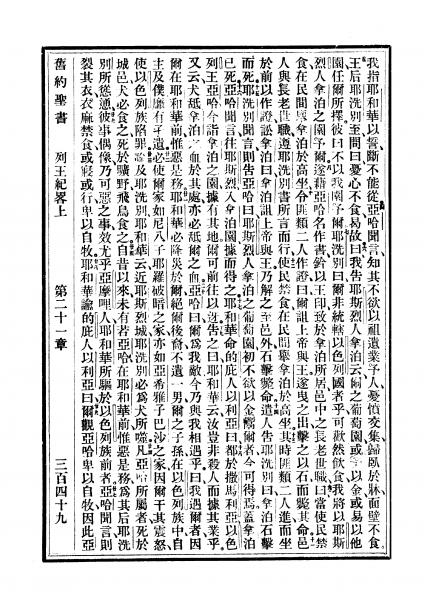 我指耶和華以誓斷不能從亞哈聞言知其不欲以祖遺業予人憂憤交集歸臥於牀面壁不食
王后耶洗別至問曰憂心不食曷故曰我告耶斯烈人拿泊云爾之葡萄園或予以金或易以他
園任爾所擇彼曰不以我園予爾耶洗別曰爾非統轄以色列國者乎可歡然飲食我將以耶斯
烈人拿泊之園予爾遂藉亞哈名作書鈐以王印致於拿泊所居邑中之長老世職曰當使民禁
食在民間舉拿泊於高坐令匪類二人作證曰爾詛上帝與王遂曳之出擊之以石而斃其命邑
人與長老世職遵耶洗別書所言而行使民禁食在民間舉拿泊於高坐其時匪類二人進而坐
於前以作證訟拿泊曰拿泊詛上帝與王乃解之至邑外石擊斃命遣人告耶洗別曰拿泊石擊
而死耶洗別聞言則告亞哈曰耶斯烈人拿泊之葡萄園初不欲以金鬻爾者今可得焉蓋拿泊
已死亞哈聞言往耶斯烈入拿泊園據而得之耶和華命的庶人以利亞曰都於撒馬利亞以色
列王亞哈今詣拿泊之園據有其地爾可前往以迓告之曰耶和華云汝豈非殺人而據其業乎
又云犬舐拿泊之血於其處亦必舐爾之血亞哈曰爾為我敵今乃與我相遇乎曰我遇爾者因
爾在耶和華前惟惡是務耶和華必降災於爾絕爾後裔不遺一男爾之子孫在以色列族中自
主及僕靡有孑遺必使爾家如尼八子耶羅破暗之家亦如亞希雅子巴沙之家因爾干其震怒
使以色列族陷罪論及耶洗別耶和華云近耶斯烈城耶洗別必為犬所噬凡亞哈所屬者死於
城邑犬必食之死於曠野飛鳥食之自昔以來未有若亞哈在耶和華前惟惡是務為其后耶洗
別所慫恿彼事偶像乃可惡之事效尤乎亞摩哩人耶和華所驅於以色列族前者亞哈聞言則
裂其衣衣麻禁食或寢或行卑以自牧耶和華諭的庶人以利亞曰爾觀亞哈卑以自牧因此亞
舊約聖書 列王紀畧上 第二十一章 三百四十九